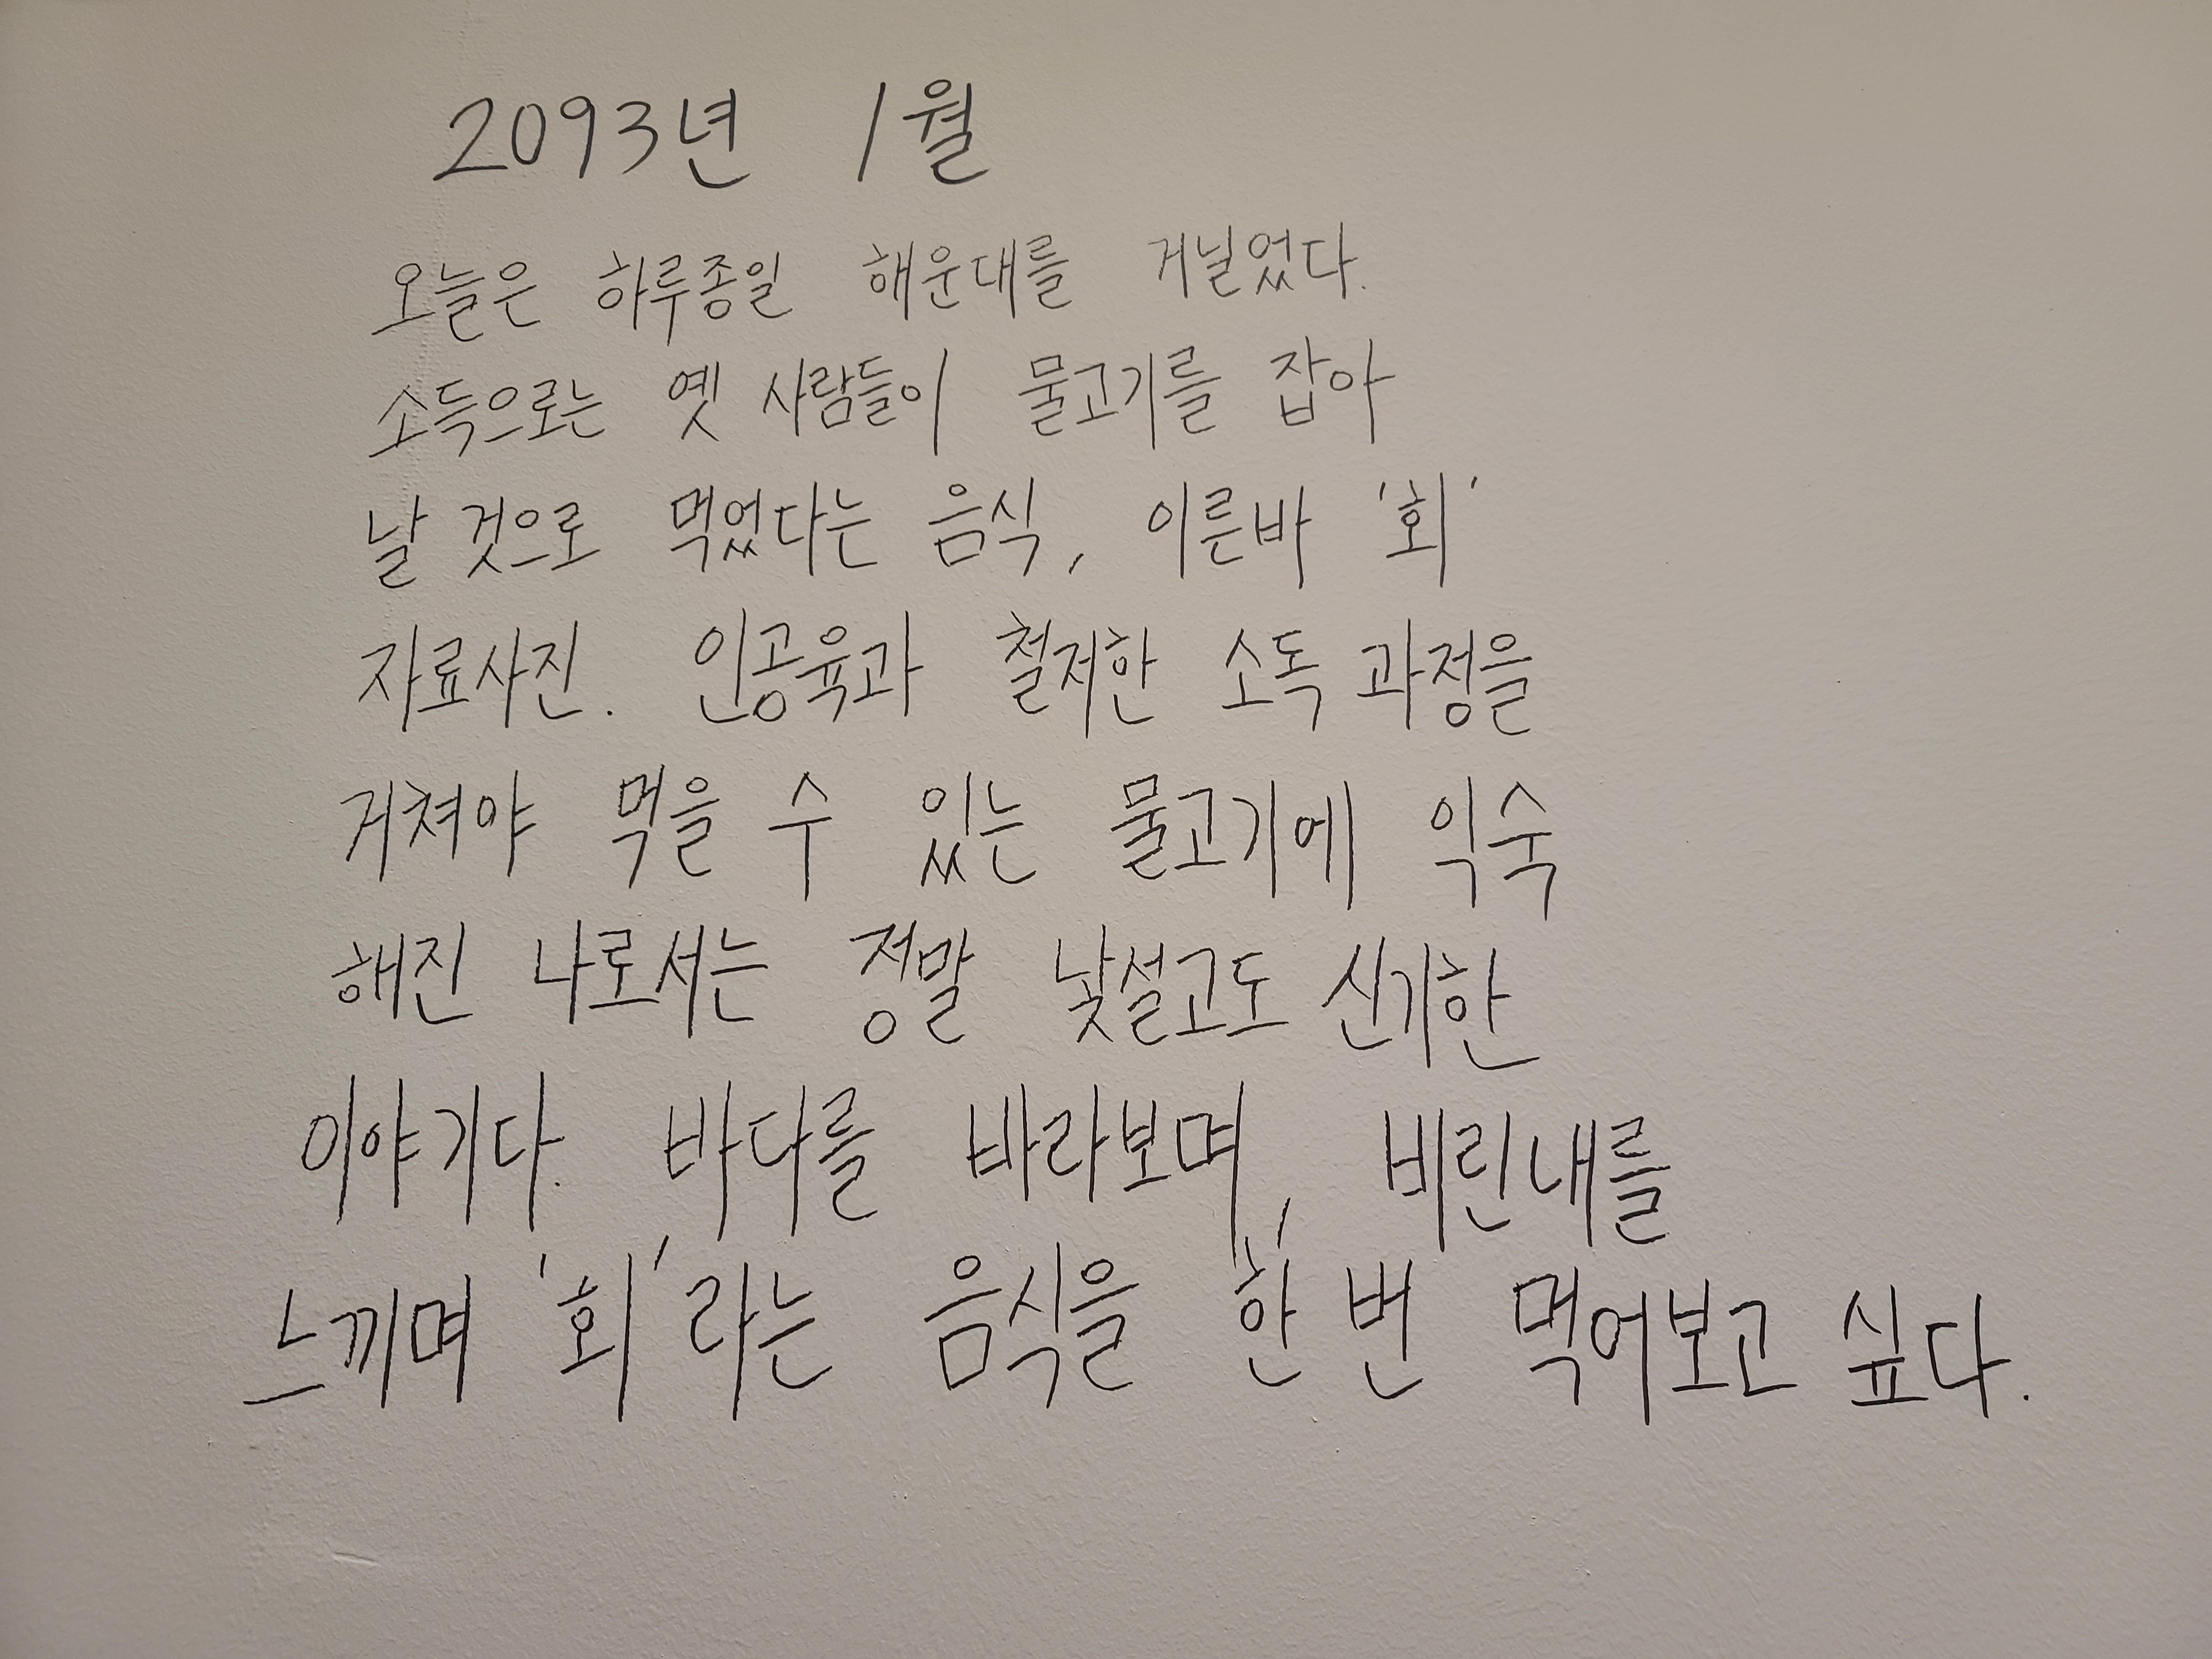 2093년 1월
오늘은 하루종일 해운대를 거닐었다.
소득으로는 옛 사람들이 물고기를 잡아
날 것으로 먹었다는 음식, 이른바 '회'
자료사진. 인공육과 철저한 소독 과정을
거쳐야 먹을 수 있는 물고기에 익숙
해진 나로서는 정말 낯설고도 신기한
이야기다. 바다를 바라보며, 비린내를
느끼며 '회'라는 음식을 한 번 먹어보고 싶다.